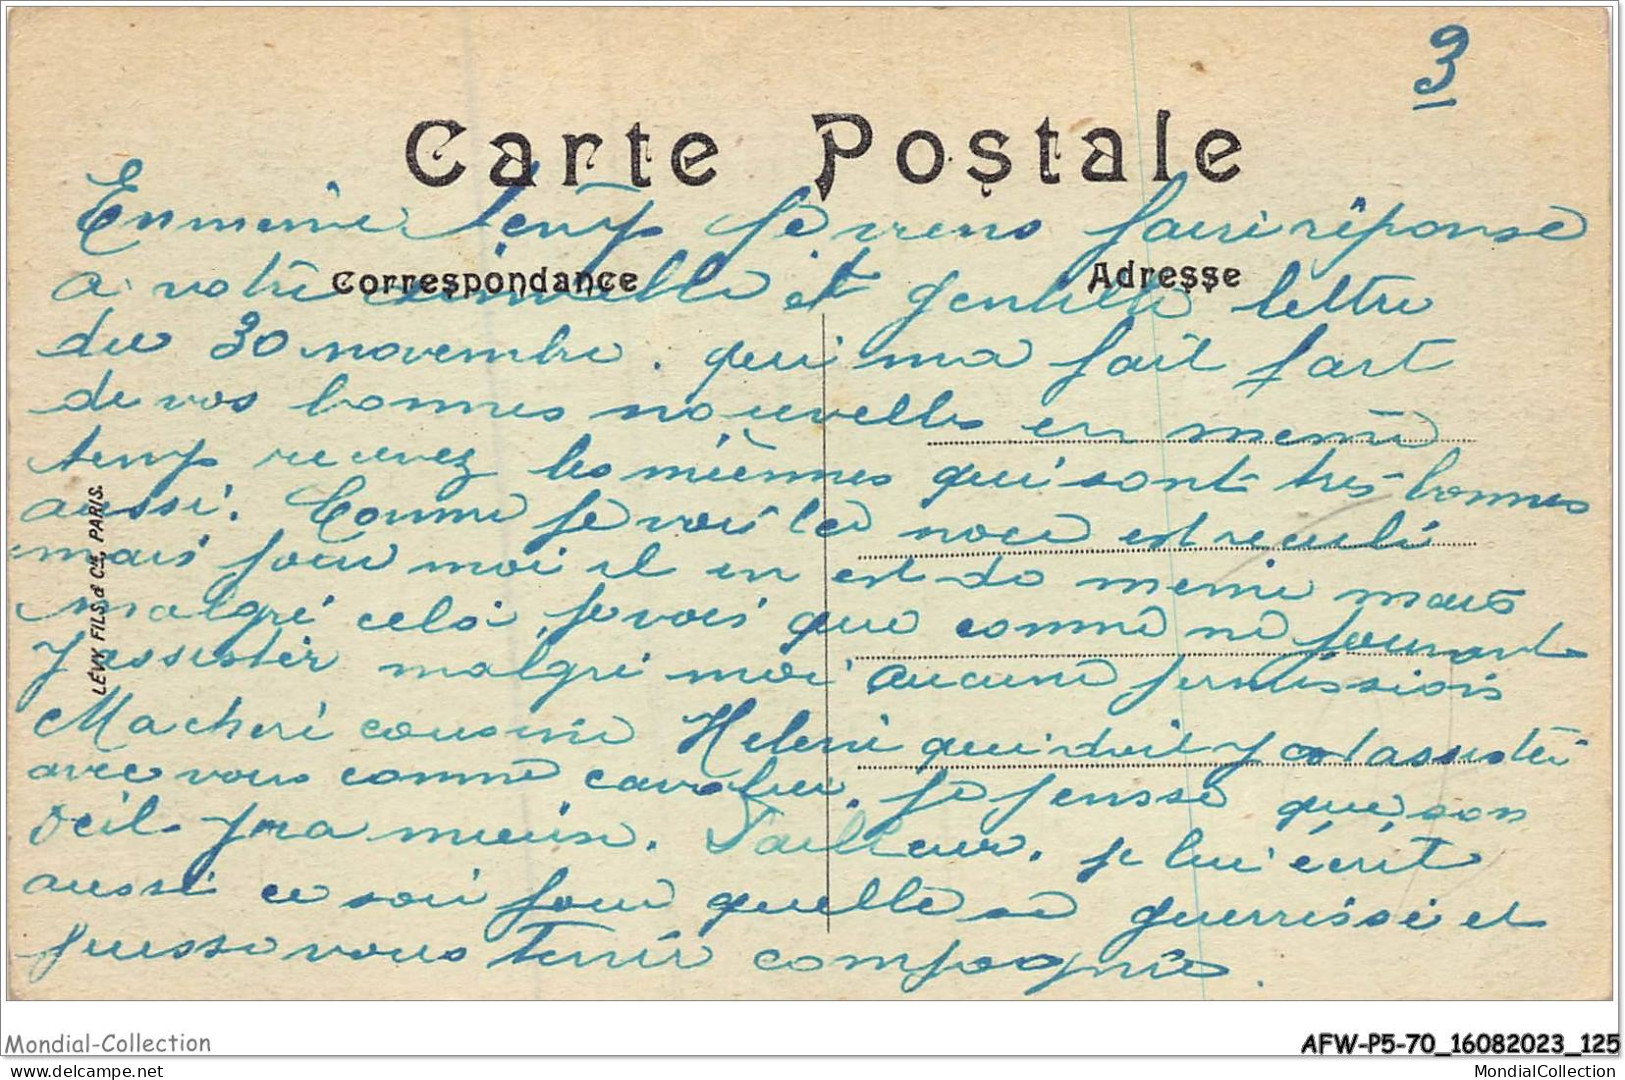 3
Carte Postale
En meme temp je viens faire réponse
Correspondance
Adresse
a votre nouvelle et gentille lettre
du 30 novembre. qui ma fait part
de vos bonnes nouvelles en meme
temp recevez les miènnes qui sont très bonnes
aussi. Comme je vois la noce est reculé
mais pour moi il en est do meme mais
malgré celà je vois que comme ne pouvant
y assistér malgré moi aucune permissions
Ma cheré cousine Helene qui doit y assistér
avec vous comme cavalier. je pensse que son
oeil yra mieux. Tailleur. je lui écrit
aussi ce soir pour quelle se guerrisse et
puisse vous tenir compagnie.
LÉVY FILS & Cie, PARIS.
Mondial-Collection
AFW-P5-70_16082023_125
delcampe.net
MondialCollection